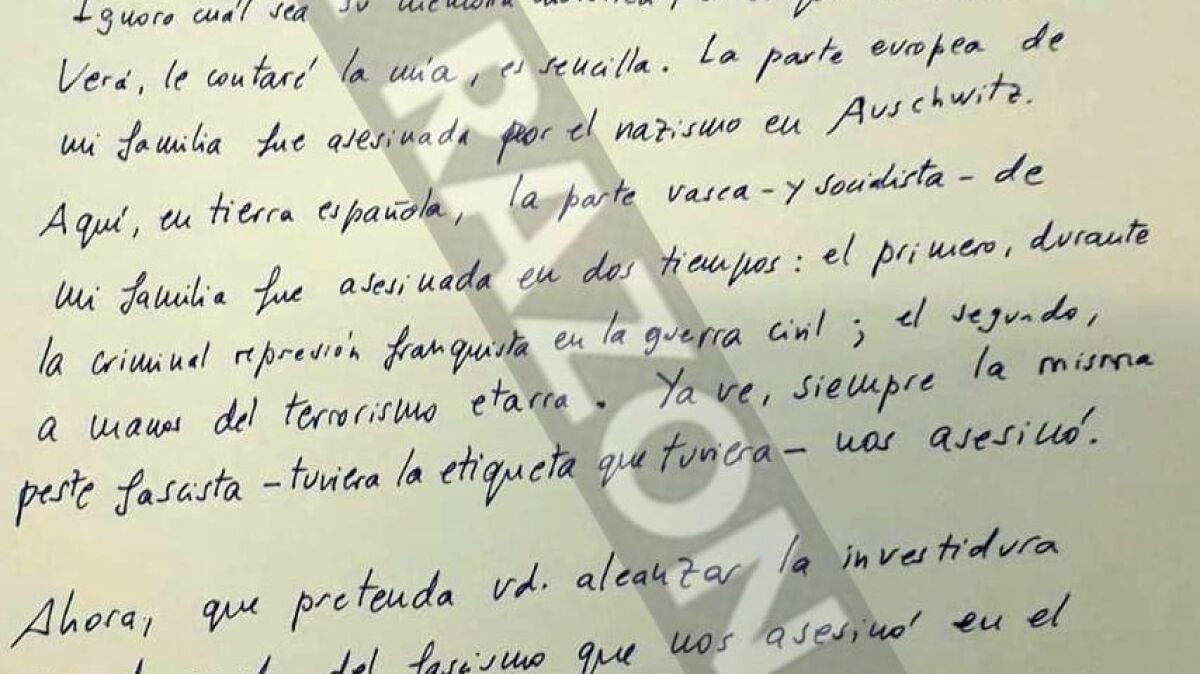 Ignoro cuál sea su memoria
Verá, le contaré la mía, es sencilla. La parte europea de
mi familia fue asesinada por el nazismo en Auschwitz.
Aquí, en tierra española, la parte vasca - y socialista - de
mi familia fue asesinada en dos tiempos: el primero, durante
la criminal represión franquista en la guerra civil; el segundo,
a manos del terrorismo etarra. Ya ve, siempre la misma
peste fascista - tuviera la etiqueta que tuviera - nos asesinó.
Ahora, que pretenda vd. alcanzar la investidura
del fascismo que nos asesinó en el
RAZON